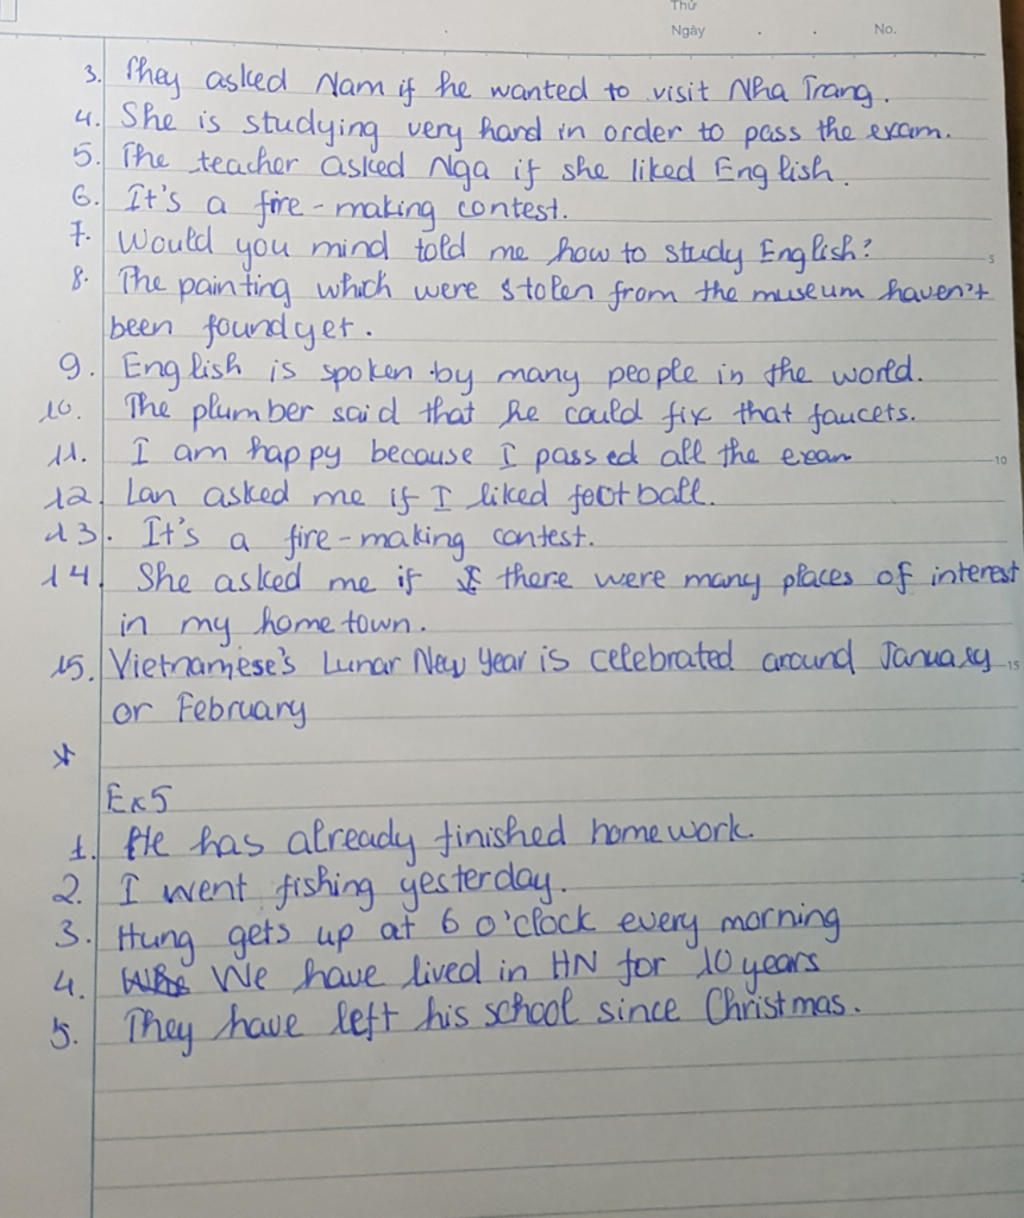 Thứ
Ngày . . No.
3. They asked Nam if he wanted to visit Nha Trang.
4. She is studying very hard in order to pass the exam.
5. The teacher asked Nga if she liked English.
6. It's a fire-making contest.
7. Would you mind told me how to study English?
5
8. The painting which were stolen from the museum haven't
been found yet.
9. English is spoken by many people in the world.
10. The plumber said that he could fix that faucets.
11. I am happy because I passed all the exam
10
12. Lan asked me if I liked football.
13. It's a fire-making contest.
14. She asked me if there were many places of interest
in my home town.
15. Vietnamese's Lunar New Year is celebrated around January
15
or February
*
Ex5
1. He has already finished homework.
2. I went fishing yesterday.
3. Hung gets up at 6 o'clock every morning
4. We have lived in HN for 10 years
5. They have left his school since Christmas.